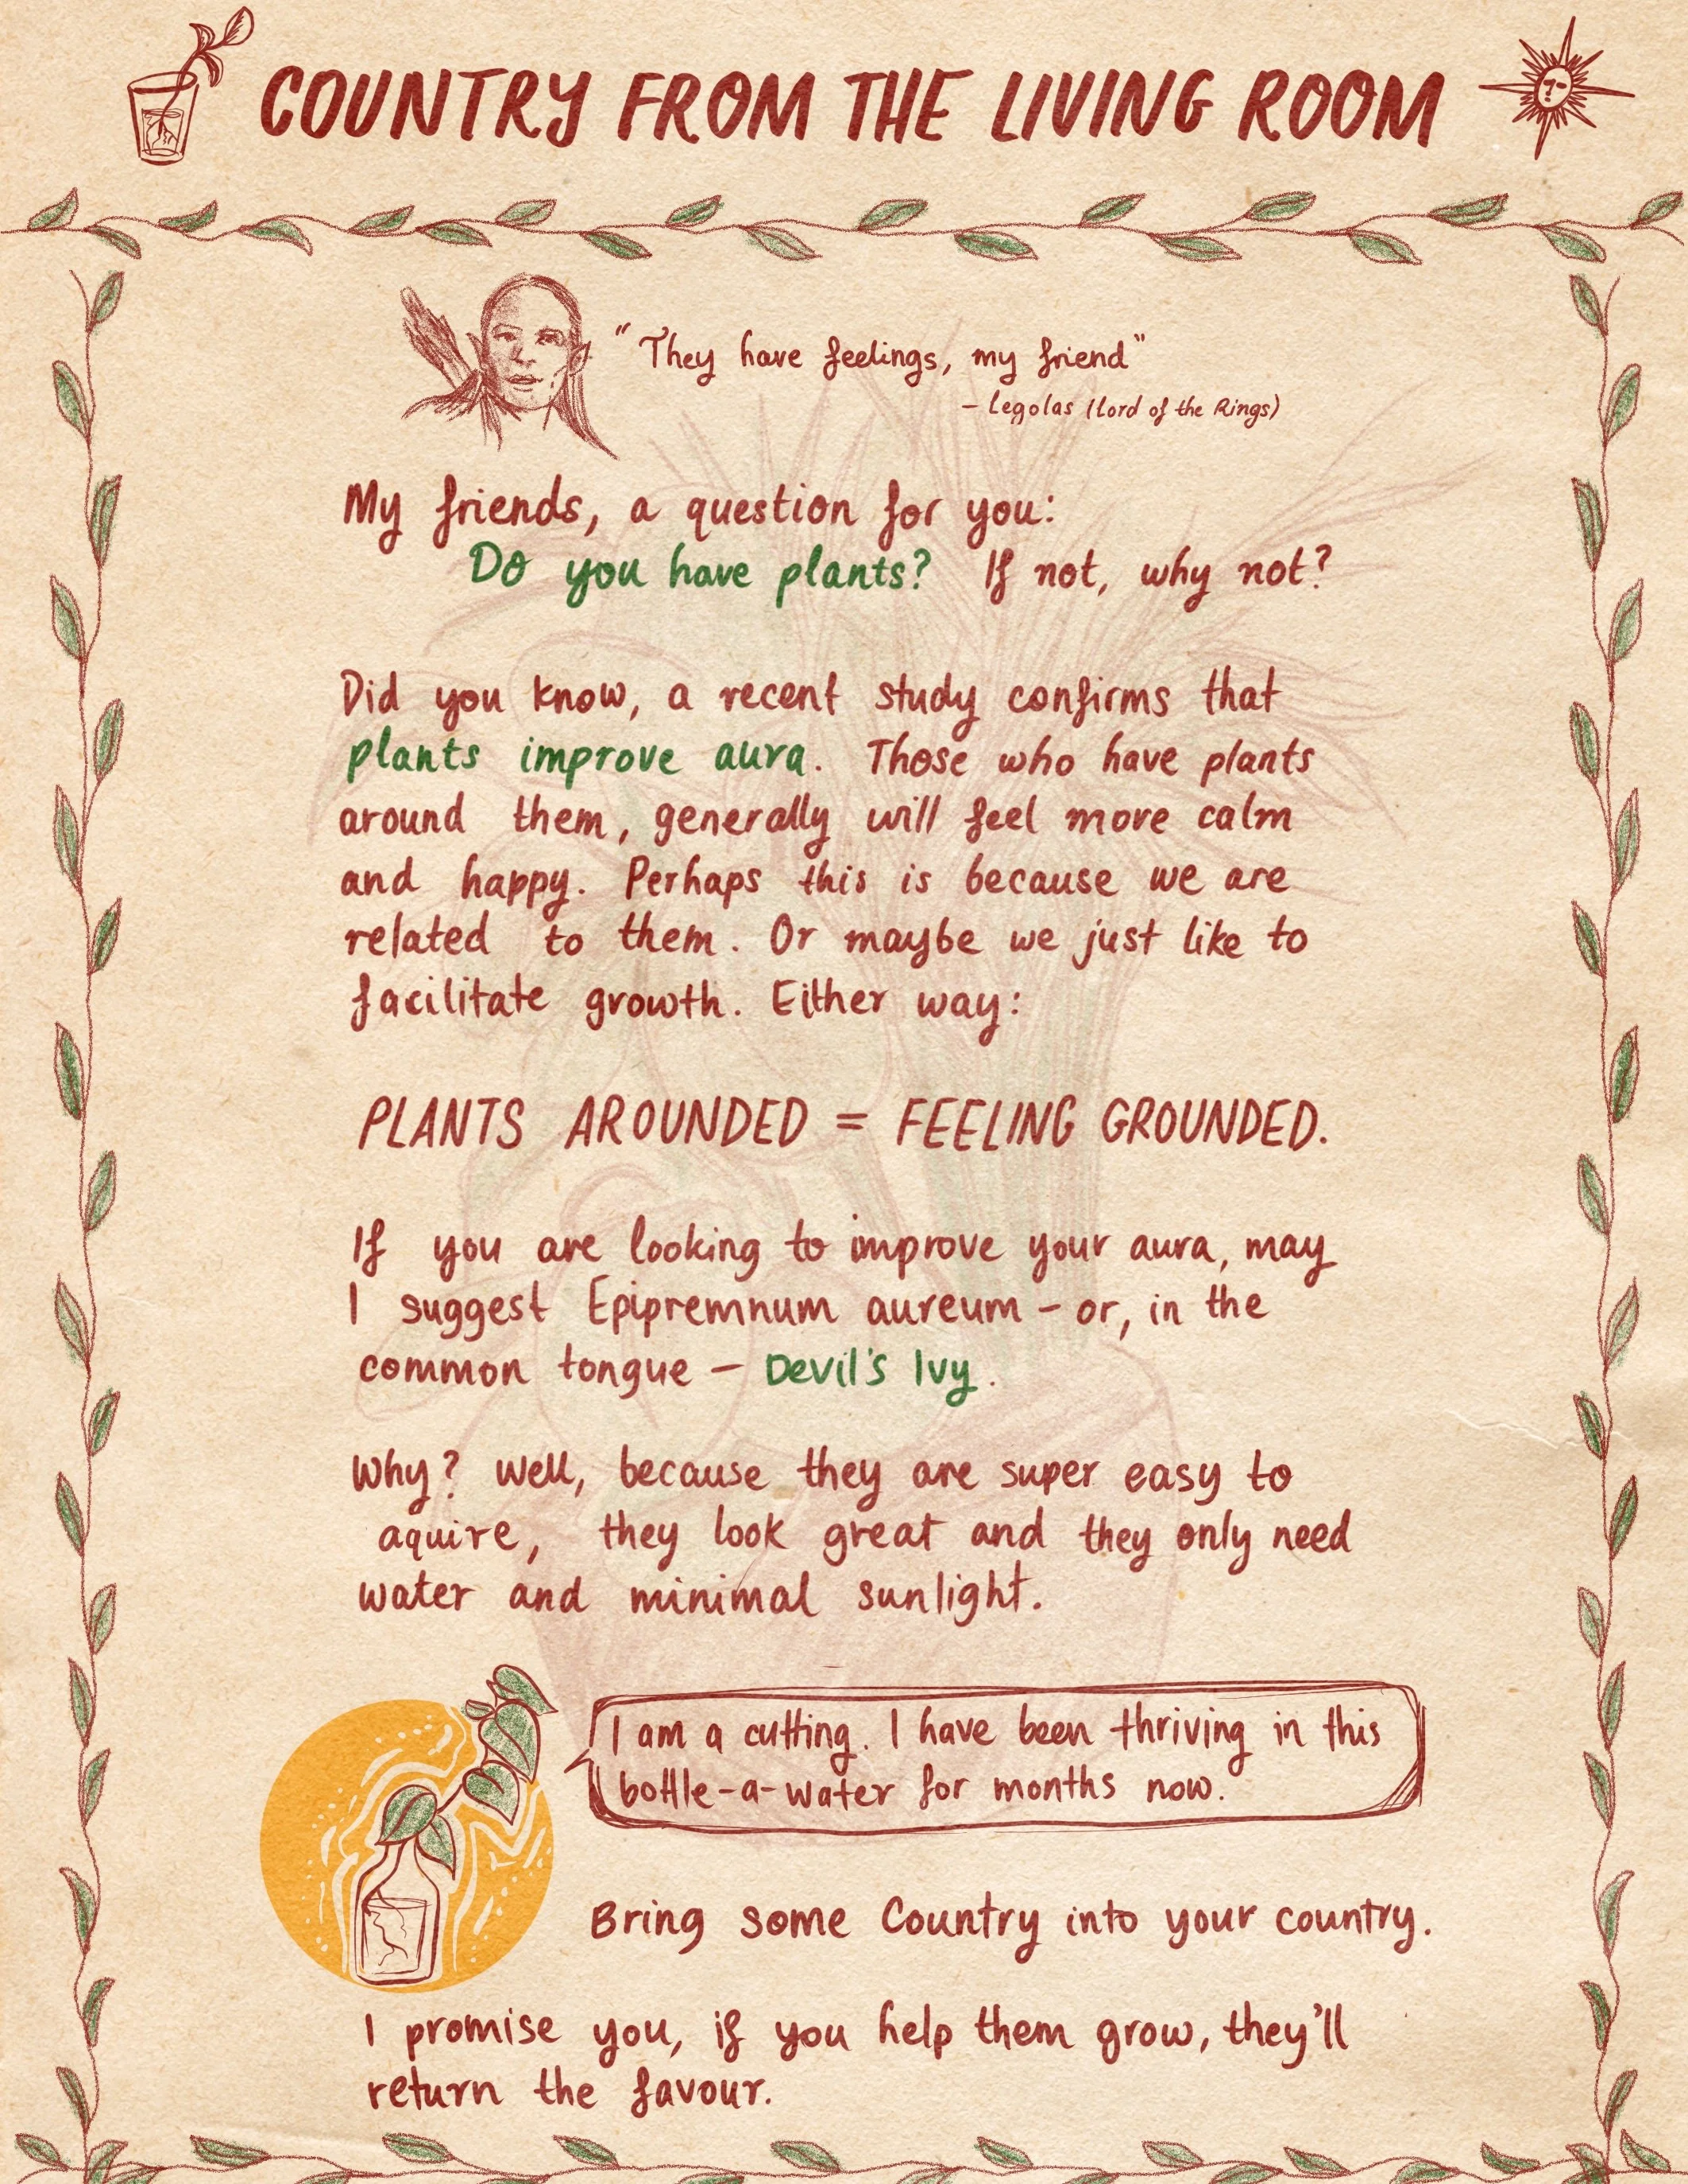 COUNTRY FROM THE LIVING ROOM
"They have feelings, my friend"
- Legolas (Lord of the Rings)
My friends, a question for you:
Do you have plants? If not, why not?
Did you know, a recent study confirms that
plants improve aura. Those who have plants
around them, generally will feel more calm
and happy. Perhaps this is because we are
related to them. Or maybe we just like to
facilitate growth. Either way:
PLANTS AROUNDED = FEELING GROUNDED.
If you are looking to improve your aura, may
I suggest Epipremnum aureum - or, in the
common tongue - Devil's Ivy.
Why? Well, because they are super easy to
aquire, they look great and they only need
water and minimal sunlight.
I am a cutting. I have been thriving in this
bottle-a-water for months now.
Bring some Country into your country.
I promise you, if you help them grow, they'll
return the favour.